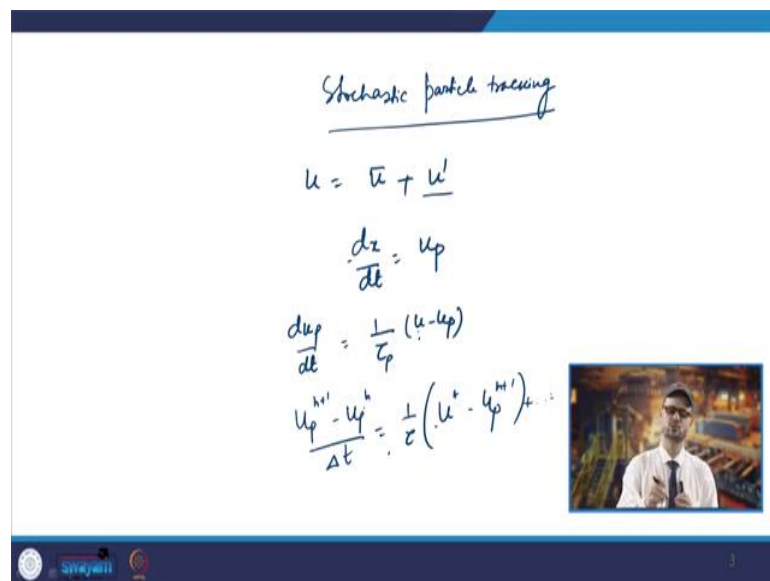 Stochastic particle tracking
u = ū + u'
dx/dt = up
dup/dt = 1/τp (u - up)
(up^n+1 - up^n)/Δt = 1/τ (u* - up^n+1) + ...
swayam
3